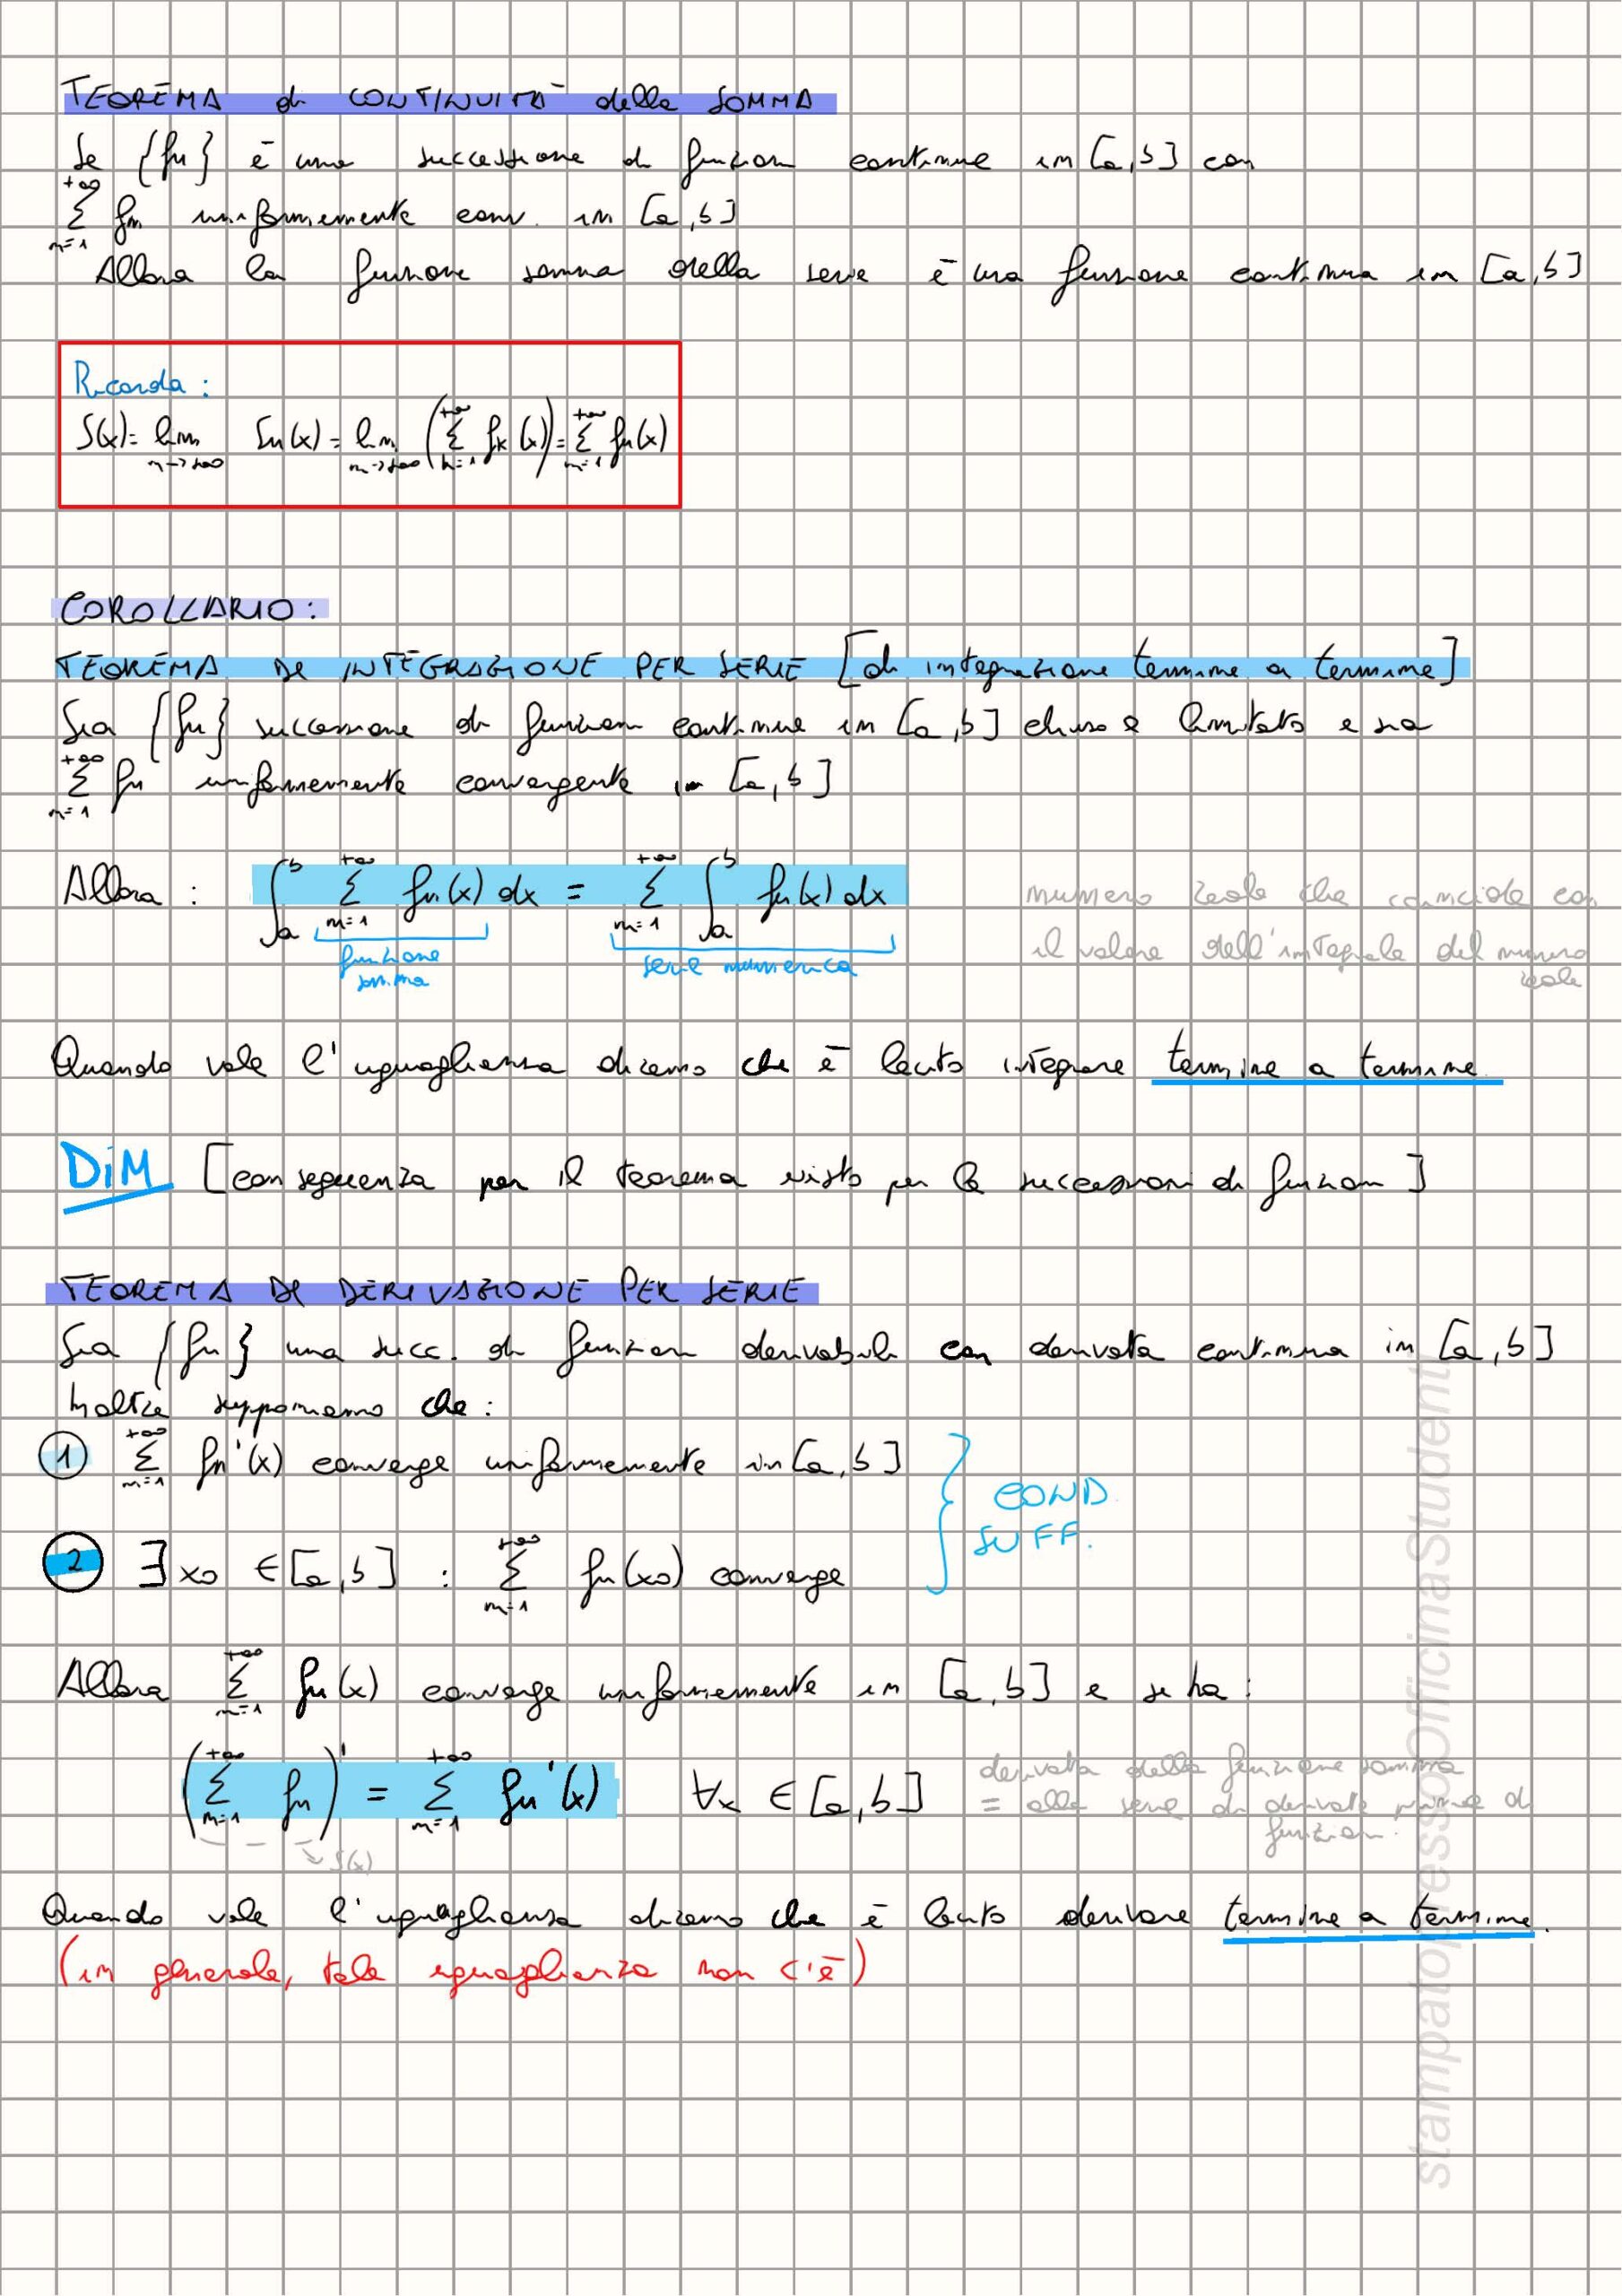 TEOREMA di CONTINUITÀ della SOMMA
Se {fn} è una successione di funzioni continue in [a,b] con
+∞ Σ n=1 fn uniformemente conv. in [a,b]
Allora la funzione somma della serie è una funzione continua in [a,b]
Ricorda:
S(x)= lim n→+∞ Sn(x) = lim n→+∞ (+∞ Σ k=1 fk(x)) = +∞ Σ n=1 fn(x)
COROLLARIO:
TEOREMA DI INTEGRAZIONE PER SERIE [di integrazione termine a termine]
Sia {fn} successione di funzioni continue in [a,b] chiuso e limitato e sia
+∞ Σ n=1 fn uniformemente convergente in [a,b]
Allora: ∫ₐᵇ +∞ Σ n=1 fn(x) dx = +∞ Σ n=1 ∫ₐᵇ fn(x) dx
funzione somma
serie numerica
numero reale che coincide con
il valore dell'integrale del numero
reale
Quando vale l'uguaglianza diciamo che è lecito integrare termine a termine.
DIM [conseguenza per il teorema visto per le successioni di funzioni]
TEOREMA DI DERIVAZIONE PER SERIE
Sia {fn} una succ. di funzioni derivabili con derivata continua in [a,b]
Inoltre supponiamo che:
① +∞ Σ n=1 fn'(x) converge uniformemente in [a,b]
② ∃ x0 ∈ [a,b] : +∞ Σ n=1 fn(x0) converge
COND.
SUFF.
Allora +∞ Σ n=1 fn(x) converge uniformemente in [a,b] e si ha:
(+∞ Σ n=1 fn)' = +∞ Σ n=1 fn'(x) ∀x ∈ [a,b]
S(x)
derivata della funzione somma
= alla serie di derivate prime di
funzioni.
Quando vale l'uguaglianza diciamo che è lecito derivare termine a termine.
(in generale, tale uguaglianza non c'è)
stampatopressoOfficinaStudenti